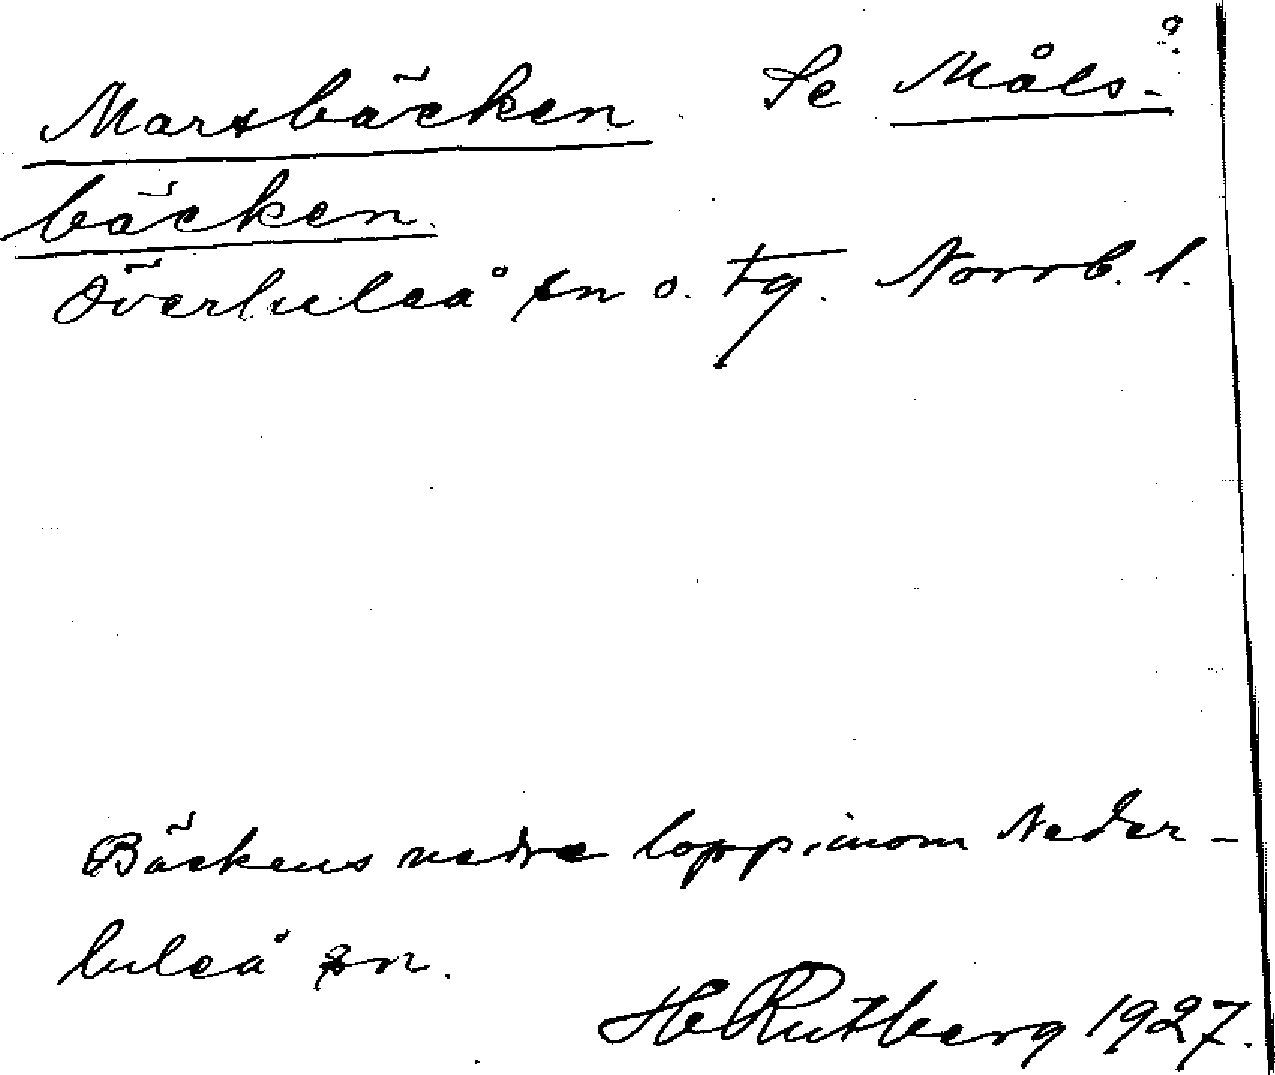 Marsbäcken Se Måls-
bäcken.
Överluleå sn o. tg. Norrb. l.
Bäckens nedre lopp, inom Neder-
luleå sn.
H Rutberg 1927.